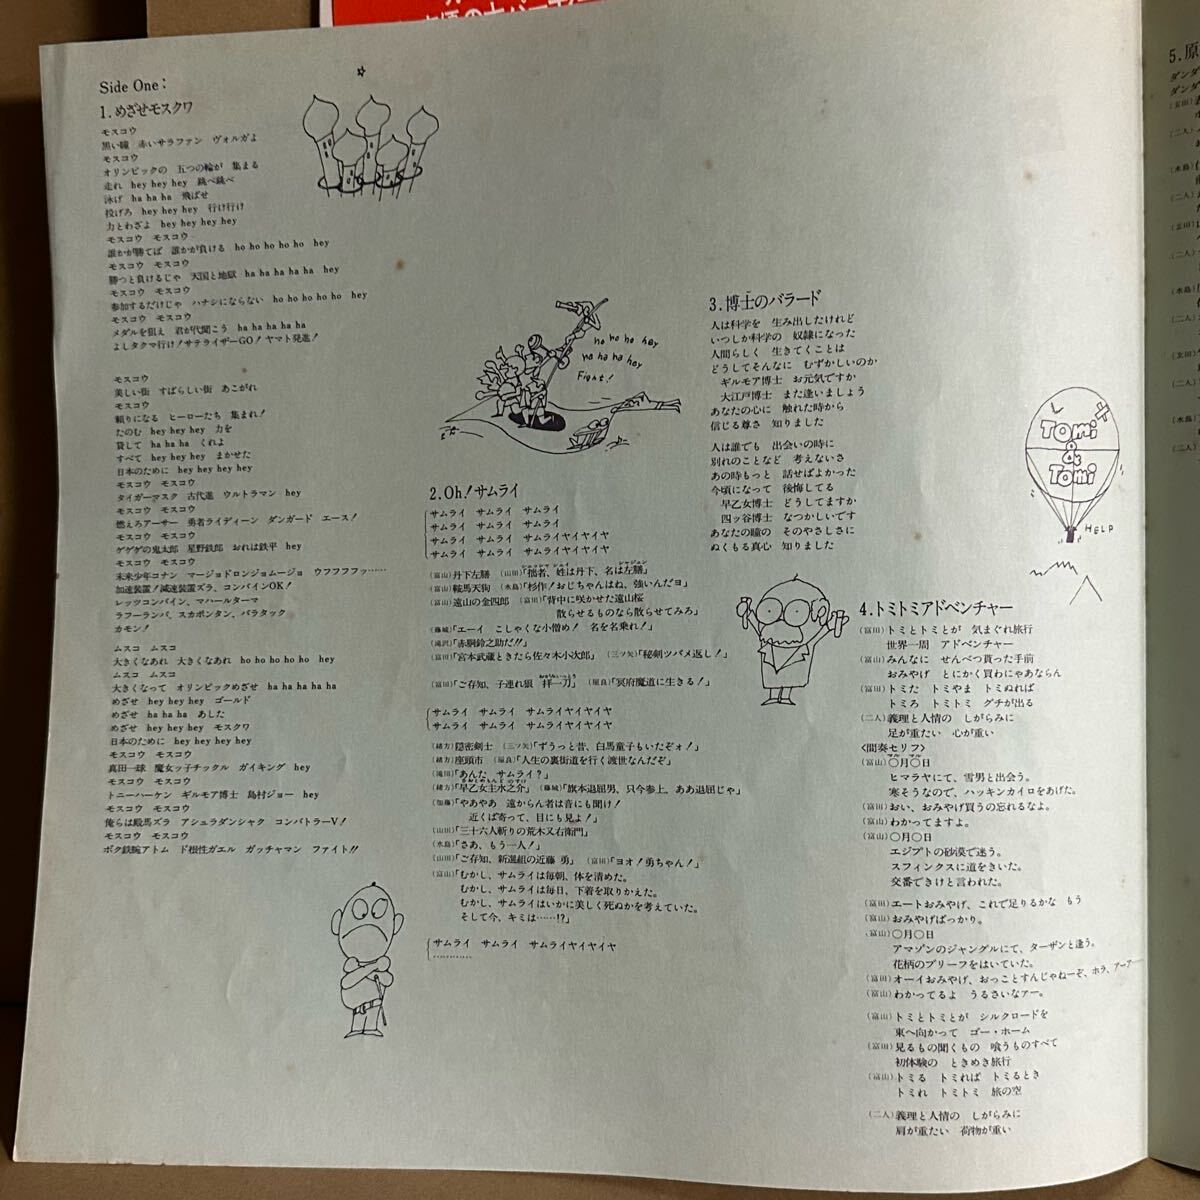 Side One:
1. めざせモスクワ
モスコウ
黒い瞳 赤いサラファン ヴォルガよ
モスコウ
オリンピックの 五つの輪が 集まる
走れ hey hey hey 跳べ跳べ
泳げ ha ha ha 飛ばせ
投げろ hey hey hey 行け行け
力とわざよ hey hey hey hey
モスコウ モスコウ
誰かが勝てば 誰かが負ける ho ho ho ho ho hey
モスコウ モスコウ
勝つと負けるじゃ 天国と地獄 ha ha ha ha ha hey
モスコウ モスコウ
参加するだけじゃ ハナシにならない ho ho ho ho ho hey
モスコウ モスコウ
メダルを狙え 君が代聞こう ha ha ha ha ha
よしタクマ行け! サテライザーGO! ヤマト発進!
モスコウ
美しい街 すばらしい街 あこがれ
モスコウ
頼りになる ヒーローたち 集まれ!
たのむ hey hey hey 力を
貸して ha ha ha くれよ
すべて hey hey hey まかせた
日本のために hey hey hey hey
モスコウ モスコウ
タイガーマスク 古代進 ウルトラマン hey
モスコウ モスコウ
燃えろアーサー 勇者ライディーン ダンガード エース!
モスコウ モスコウ
ゲゲゲの鬼太郎 星野鉄郎 おれは鉄平 hey
モスコウ モスコウ
未来少年コナン マージョドロンジョムージョ ウフフフフッ……
加速装置! 減速装置ズラ、コンバインOK!
レッツコンバイン、マハールターマ
ラフーランパ、スカポンタン、パラタック
カモン!
ムスコ ムスコ
大きくなあれ 大きくなあれ ho ho ho ho ho hey
ムスコ ムスコ
大きくなって オリンピックめざせ ha ha ha ha ha
めざせ hey hey hey ゴールド
めざせ ha ha ha あした
めざせ hey hey hey モスクワ
日本のために hey hey hey hey
モスコウ モスコウ
真田一球 魔女ッ子チックル ガイキング hey
モスコウ モスコウ
トニーハーケン ギルモア博士 島村ジョー hey
モスコウ モスコウ
俺らは殿馬ズラ アシュラダンシャク コンバトラーV!
モスコウ モスコウ
ボク鉄腕アトム ド根性ガエル ガッチャマン ファイト!!
ho ho ho hey
ha ha ha hey
Fight!
2. Oh! サムライ
サムライ サムライ サムライ
サムライ サムライ サムライ
サムライ サムライ サムライヤイヤイヤ
サムライ サムライ サムライヤイヤイヤ
(富山)丹下左膳 (山田)「拙者、姓は丹下、名は左膳」
(富山)鞍馬天狗 (水島)「杉作! おじちゃんはね、強いんだヨ」
(富山)遠山の金四郎 (富田)「背中に咲かせた遠山桜
散らせるものなら散らせてみろ」
(藤城)「エーイ こしゃくな小僧め! 名を名乗れ!」
(滝沢)「赤胴鈴之助だ!!」
(富田)「宮本武蔵ときたら佐々木小次郎」 (三ツ矢)「秘剣ツバメ返し!」
(富田)「ご存知、子連れ狼 拝一刀」 (屋良)「冥府魔道に生きる!」
サムライ サムライ サムライヤイヤイヤ
サムライ サムライ サムライヤイヤイヤ
(緒方)隠密剣士 (三ツ矢)「ずうっと昔、白馬童子もいたぞォ!」
(緒方)座頭市 (屋良)「人生の裏街道を行く渡世なんだぞ」
(滝田)「あんた サムライ?」
(緒方)「早乙女主水之介」 (藤城)「旗本退屈男、只今参上。ああ退屈じゃ」
(加藤)「やあやあ 遠からん者は音にも聞け!
近くば寄って、目にも見よ!」
(山田)「三十六人斬りの荒木又右衛門」
(水島)「さあ、もう一人!」
(山田)「ご存知、新選組の近藤 勇」 (富田)「ヨオ! 勇ちゃん!」
(富山)「むかし、サムライは毎朝、体を清めた。
むかし、サムライは毎日、下着を取りかえた。
むかし、サムライはいかに美しく死ぬかを考えていた。
そして今、キミは……!?」
サムライ サムライ サムライヤイヤイヤ
…………
3. 博士のバラード
人は科学を 生み出したけれど
いつしか科学の 奴隷になった
人間らしく 生きてくことは
どうしてそんなに むずかしいのか
ギルモア博士 お元気ですか
大江戸博士 また逢いましょう
あなたの心に 触れた時から
信じる尊さ 知りました
人は誰でも 出会いの時に
別れのことなど 考えないさ
あの時もっと 話せばよかった
今頃になって 後悔してる
早乙女博士 どうしてますか
四ッ谷博士 なつかしいです
あなたの瞳の そのやさしさに
ぬくもる真心 知りました
Tomi & Tomi
HELP
4. トミトミアドベンチャー
(富田)トミとトミとが 気まぐれ旅行
世界一周 アドベンチャー
(富山)みんなに せんべつ貰った手前
おみやげ とにかく買わにゃあならん
(富田)トミた トミやま トミぬれば
トミろ トミトミ グチが出る
(二人)義理と人情の しがらみに
足が重たい 心が重い
〈間奏セリフ〉
(富山)〇月〇日
ヒマラヤにて、雪男と出会う。
寒そうなので、ハッキンカイロをあげた。
(富田)おい、おみやげ買うの忘れるなよ。
(富山)わかってますよ。
(富山)〇月〇日
エジプトの砂漠で迷う。
スフィンクスに道をきいた。
交番できけと言われた。
(富田)エートおみやげ、これで足りるかな もう
(富山)おみやげばっかり。
(富山)〇月〇日
アマゾンのジャングルにて、ターザンと逢う。
花柄のブリーフをはいていた。
(富田)オーイおみやげ、おっことすんじゃねーぞ、ホラ、アーアー
(富山)わかってるよ うるさいなアー。
(富山)トミとトミとが シルクロードを
東へ向かって ゴー・ホーム
(富田)見るもの聞くもの 喰うものすべて
初体験の ときめき旅行
(富山)トミる トミれば トミるとき
トミれ トミトミ 旅の空
(二人)義理と人情の しがらみに
肩が重たい 荷物が重い
5. 原
ダンダ
ダンダ